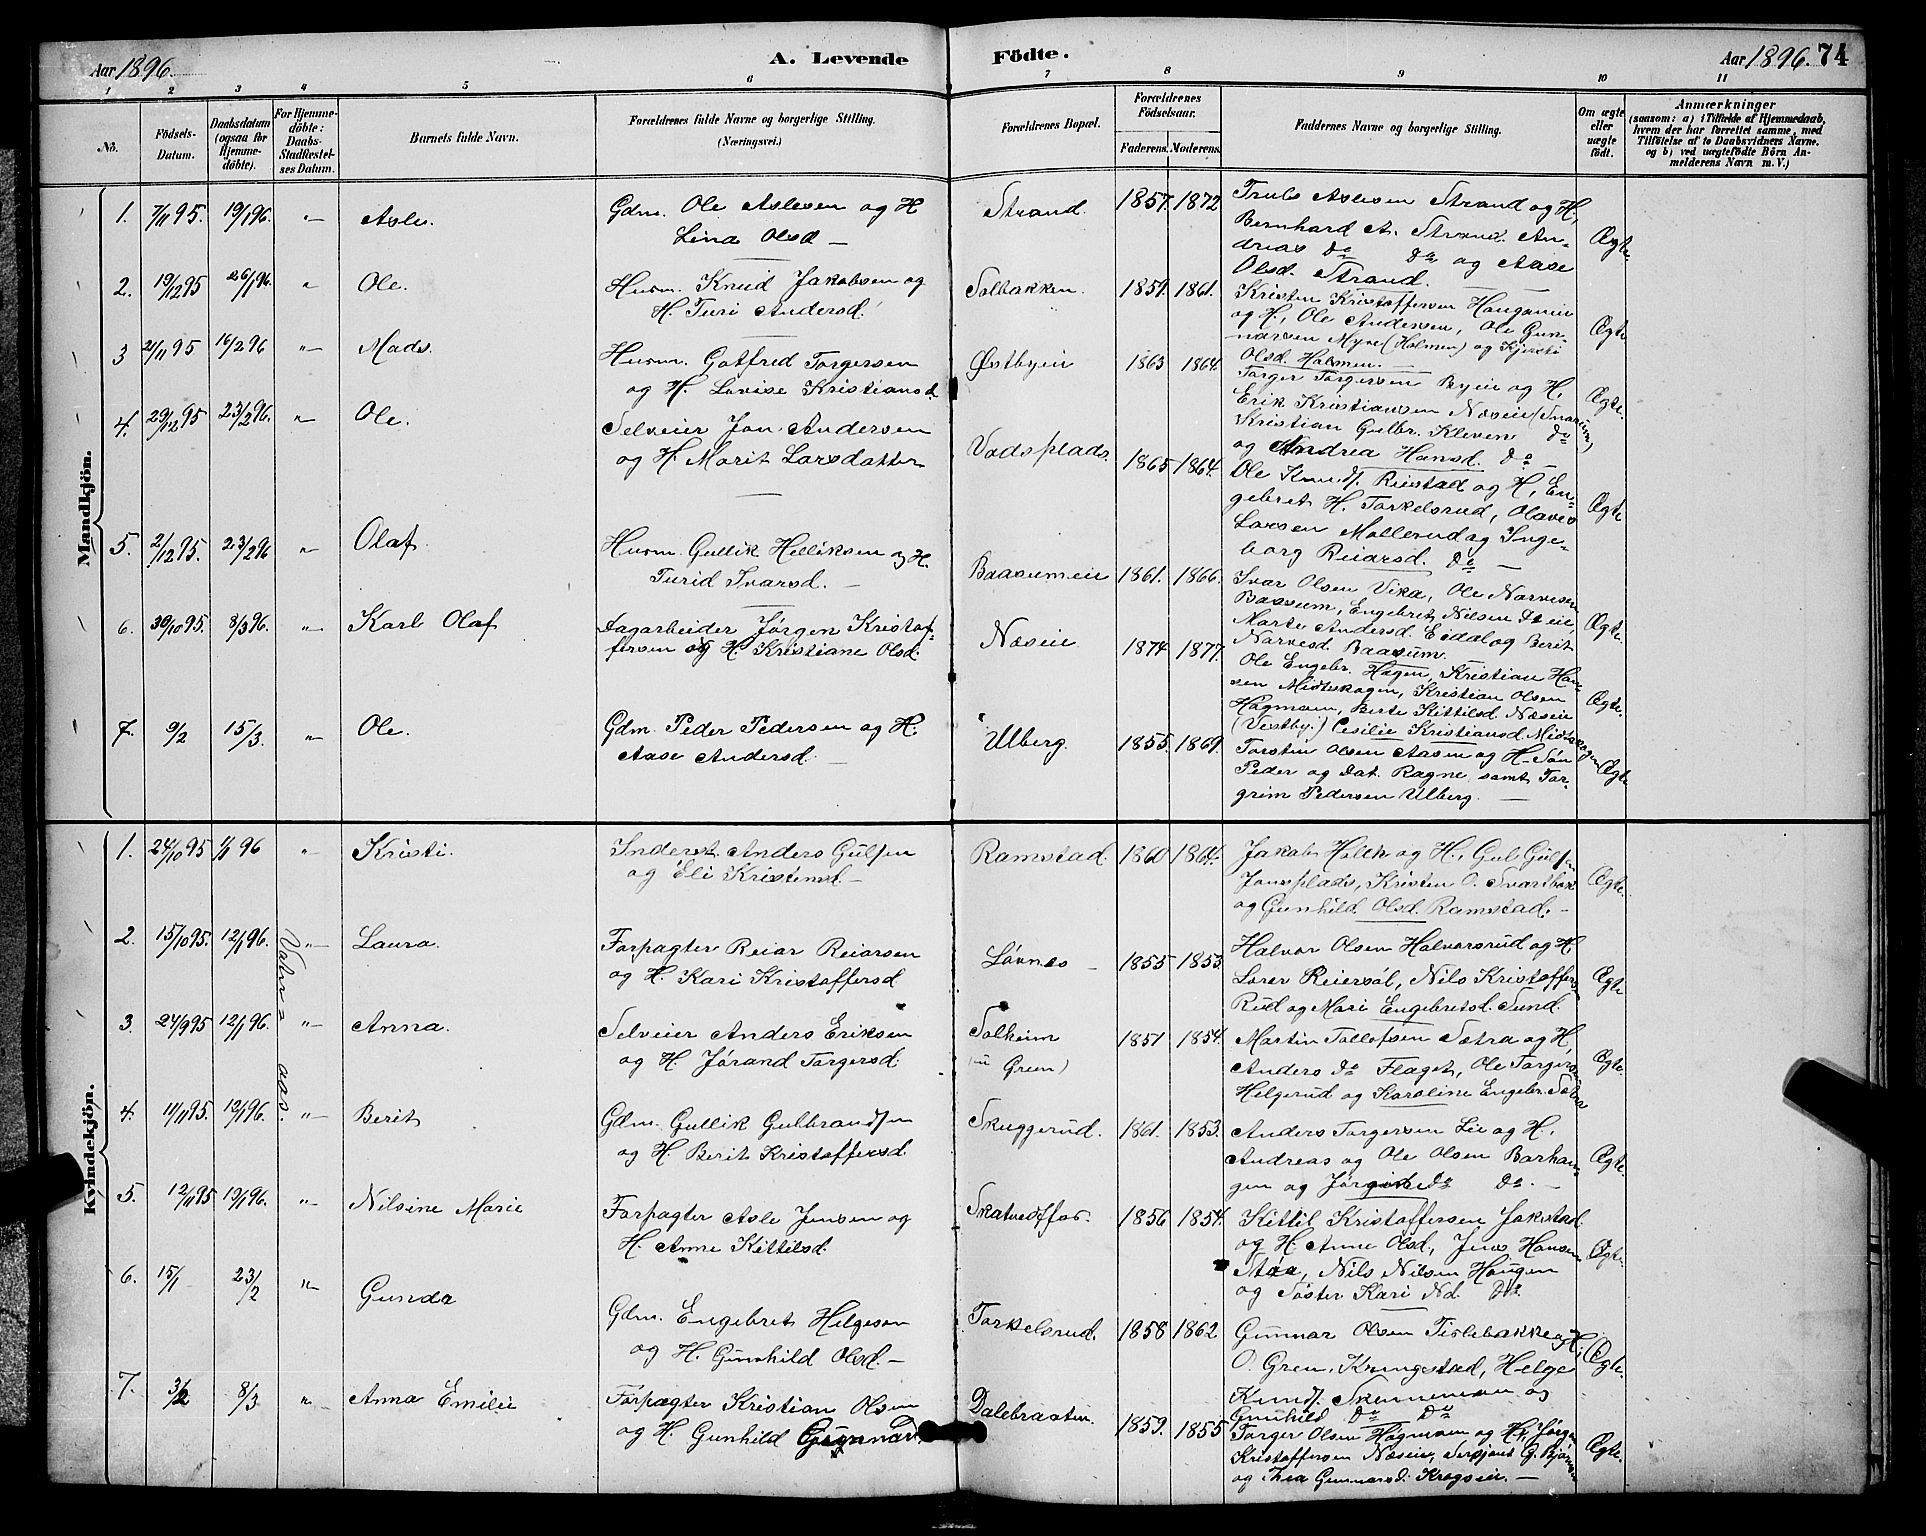 Aar 1896. A. Levende Födte. Aar 1896. 74
1 2 3 4 5 6 7 8 9 10 11
No.
Födsels-
Datum.
Daabsdatum
(ogsaa for
Hjemme-
döbte).
For Hjemme-
döbte:
Daabs-
Stadfæstel-
ses Datum.
Barnets fulde Navn.
Forældrenes fulde Navne og borgerlige Stilling.
(Næringsvei.)
Forældrenes Bopæl.
Forældrenes
Födselsaar.
Faderens. Moderens.
Faddernes Navne og borgerlige Stilling.
Om ægte
eller
uægte
født.
Anmærkninger
(saasom: a) i Tilfælde af Hjemmedaab,
hvem der har forrettet samme, med
Tilföielse af to Daabsvidners Navne.
og b) ved uægtefödte Börn An-
melderens Navn m. V.)
Mandkjön.
1. 7/11 95. 19/1 96. „ Asle. Gdm. Ole Aslesen og H
Lina Olsd —
Strand. 1857. 1872
Truls Aslesen Strand og H,
Bernhard A. Strand. An-
dreas do do og Aase
Olsd. Strand.
Ægte.
2. 19/12 95 26/1 96. „ Ole. Husm. Knud Jakobsen og
H. Turi Andersd.
Solbakken. 1859. 1861.
Kristen Kristoffersen Haugania
og H, Ole Andersen, Ole Gun-
narsen Myre (Holmen) og Kjersti
Olsd. Holmen. —
Ægte
3 2/11 95 16/2 96 „ Mads. Husm. Gotfred Torgersen
og H. Lovise Kristiansd.
Østbyeie 1863 1864.
Torger Torgersen Byeie og H,
Erik Kristiansen Næseie (Snarum),
Kristian Gulbr. Kleven do
og Andrea Hansd. do —
Ægte.
4. 29/12 95 23/2 96. „ Ole. Selveier Jon Andersen
og H. Marit Larsdatter
Vadsplads. 1865 1864.
Ole Knuds. Reistad og H, En-
gebret H. Torkelsrud, Olaves
Larsen Mollerud og Inge-
borg Reiarsd. do —
Ægte
5. 2/12 95. 23/2 96 „ Olaf. Husm. Gullik Helliksen og H.
Turid Ivarsd. —
Baasumeie 1861. 1866.
Ivar Olsen Vika, Ole Narvesen
Baasum, Engebret Nilsen do eie,
Marte Andersd. Eidal og Berit
Narvesd. Baasum.
Ægte.
6. 30/10 95. 8/3 96. „ Karl Olaf Dagarbeider Jørgen Kristof-
fersen og H. Kristiane Olsd.
Næseie. 1874 1877.
Ole Engebr. Hagen, Kristian Han-
sen Midtskogen, Kristian Olsen
Høgmoen, Berte Kittilsd. Næseie
(Vestby.) Cesilie Kristiansd. Midtskogen
Ægte.
7. 9/2 15/3. „ Ole. Gdm. Peder Pedersen og H.
Aase Andersd. —
Ulberg. 1855. 1869.
Torstin Olsen Aasen og H. Søn
Peder og Dat. Ragne samt Tor-
grim Pedersen Ulberg. —
Ægte
Kvindekjön.
1. 24/10 95 1/1 96 „ Kristi. Inderst Anders Gulsen
og Eli Kristensd. —
Ramstad. 1860 1864.
Jakob Holth og H., Gul Gulsen
Jonsplads, Kristen O. Svartbæk
og Gunhild Olsd. Ramstad. —
Ægte.
2. 15/10 95. 12/1 96. „ Laura. Forpagter Reiar Reiarsen
og H. Kari Kristoffersd
Løvnes — 1855 1853.
Halvor Olsen Halvorsrud og H,
Lorer Reiersøl, Nils Kristoffersen
Rud og Mari Engebretsd. Sund.
Ægte
Vatn=
aas.
3. 24/9 95 12/1 96. „ Anna. Selveier Anders Eriksen
og H. Jørand Torgersd.
Solheim
(u Green)
1851 1854.
Martin Tollefsen Sætra og H,
Anders do Flaget, Ole Torgersen
Helgerud og Karoline Engebr. Sætra
Ægte.
4. 11/11 95. 12/1 96. „ Berit Gdm. Gullik Gulbrandsen
og H. Berit Kristoffersd.
Skuggerud. 1861. 1853.
Anders Torgersen Lie og H,
Andreas og Ole Olsen Barhau-
gen og Jørgine do do. —
Ægte.
5. 12/11 95 12/1 96. „ Nilsine Marie Forpagter Asle Jensen og
H. Anne Kittilsd.
Skatvedfos. 1856 1854.
Kittil Kristoffersen Jokstad
og H. Anne Olsd, Jens Hansen
Støa, Nils Nilsen Haugen
og Søster Kari Nd. do.
Ægte.
6. 15/1 23/2 „ Gunda Gdm. Engebret Helgesen
og H. Gunhild Olsd. —
Torkelsrud. 1858 1862
Gunnar Olsen Tislebakke og H,
O. Gren, Krungestad, Helge
Knuds. Skinnemoen og
Gunhild do do
Ægte.
7. 3/2 8/3 „ Anna Emilie Forpagter Kristian Olsen
og H. Gunhild Gunnard.
Dalebraaten. 1859. 1855
Torger Olsen Høgmoen og H, Jørgen
Kristoffersen Næseie, G. Bjørnsen
og Thea Gunnarsd. Krogseie. —
Ægte.